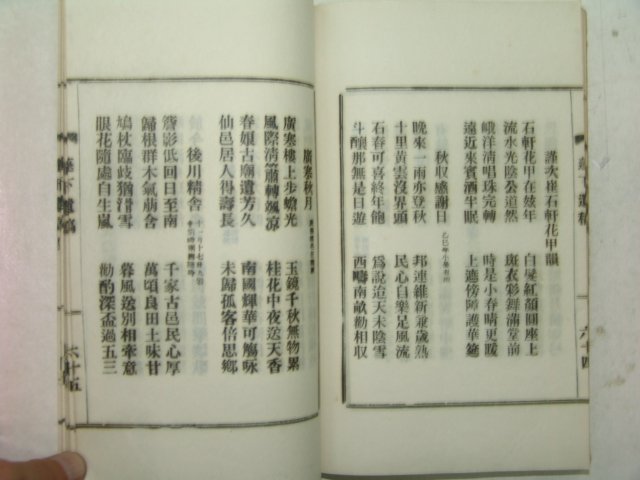 謹次崔石軒花甲韻
石軒花甲在玆年 白髮紅顏圓座上
流水光陰公道然 斑衣彩舞滿堂前
峨洋清唱珠完轉 時是小春晴更暖
遠近來賓酒半眠 上遮傍障護華筵
秋收感謝日
晚來一雨亦登秋 邦運維新兼歲熟
十里黃雲沒界頭 民心自樂足風流
石春可喜終年飽 爲說迨天未陰雪
斗釀那無是日遊 西疇南畝勸相收
六十四
廣寒秋月
廣寒樓上步蟾光 玉鏡千秋無物累
風際清簫轉颯凉 桂花中夜送天香
春娘古廟遺芳久 南國輝華可觴咏
仙邑居人得壽長 未歸孤客倍思鄉
後川精舍
簷影低回日至南 千家古邑民心厚
歸根群木氣萌含 萬頃良田土味甘
鳩杖臨歧猶滑雪 暮風送別相牽意
眼花隨處自生嵐 勸酌深盃過五三
六十五